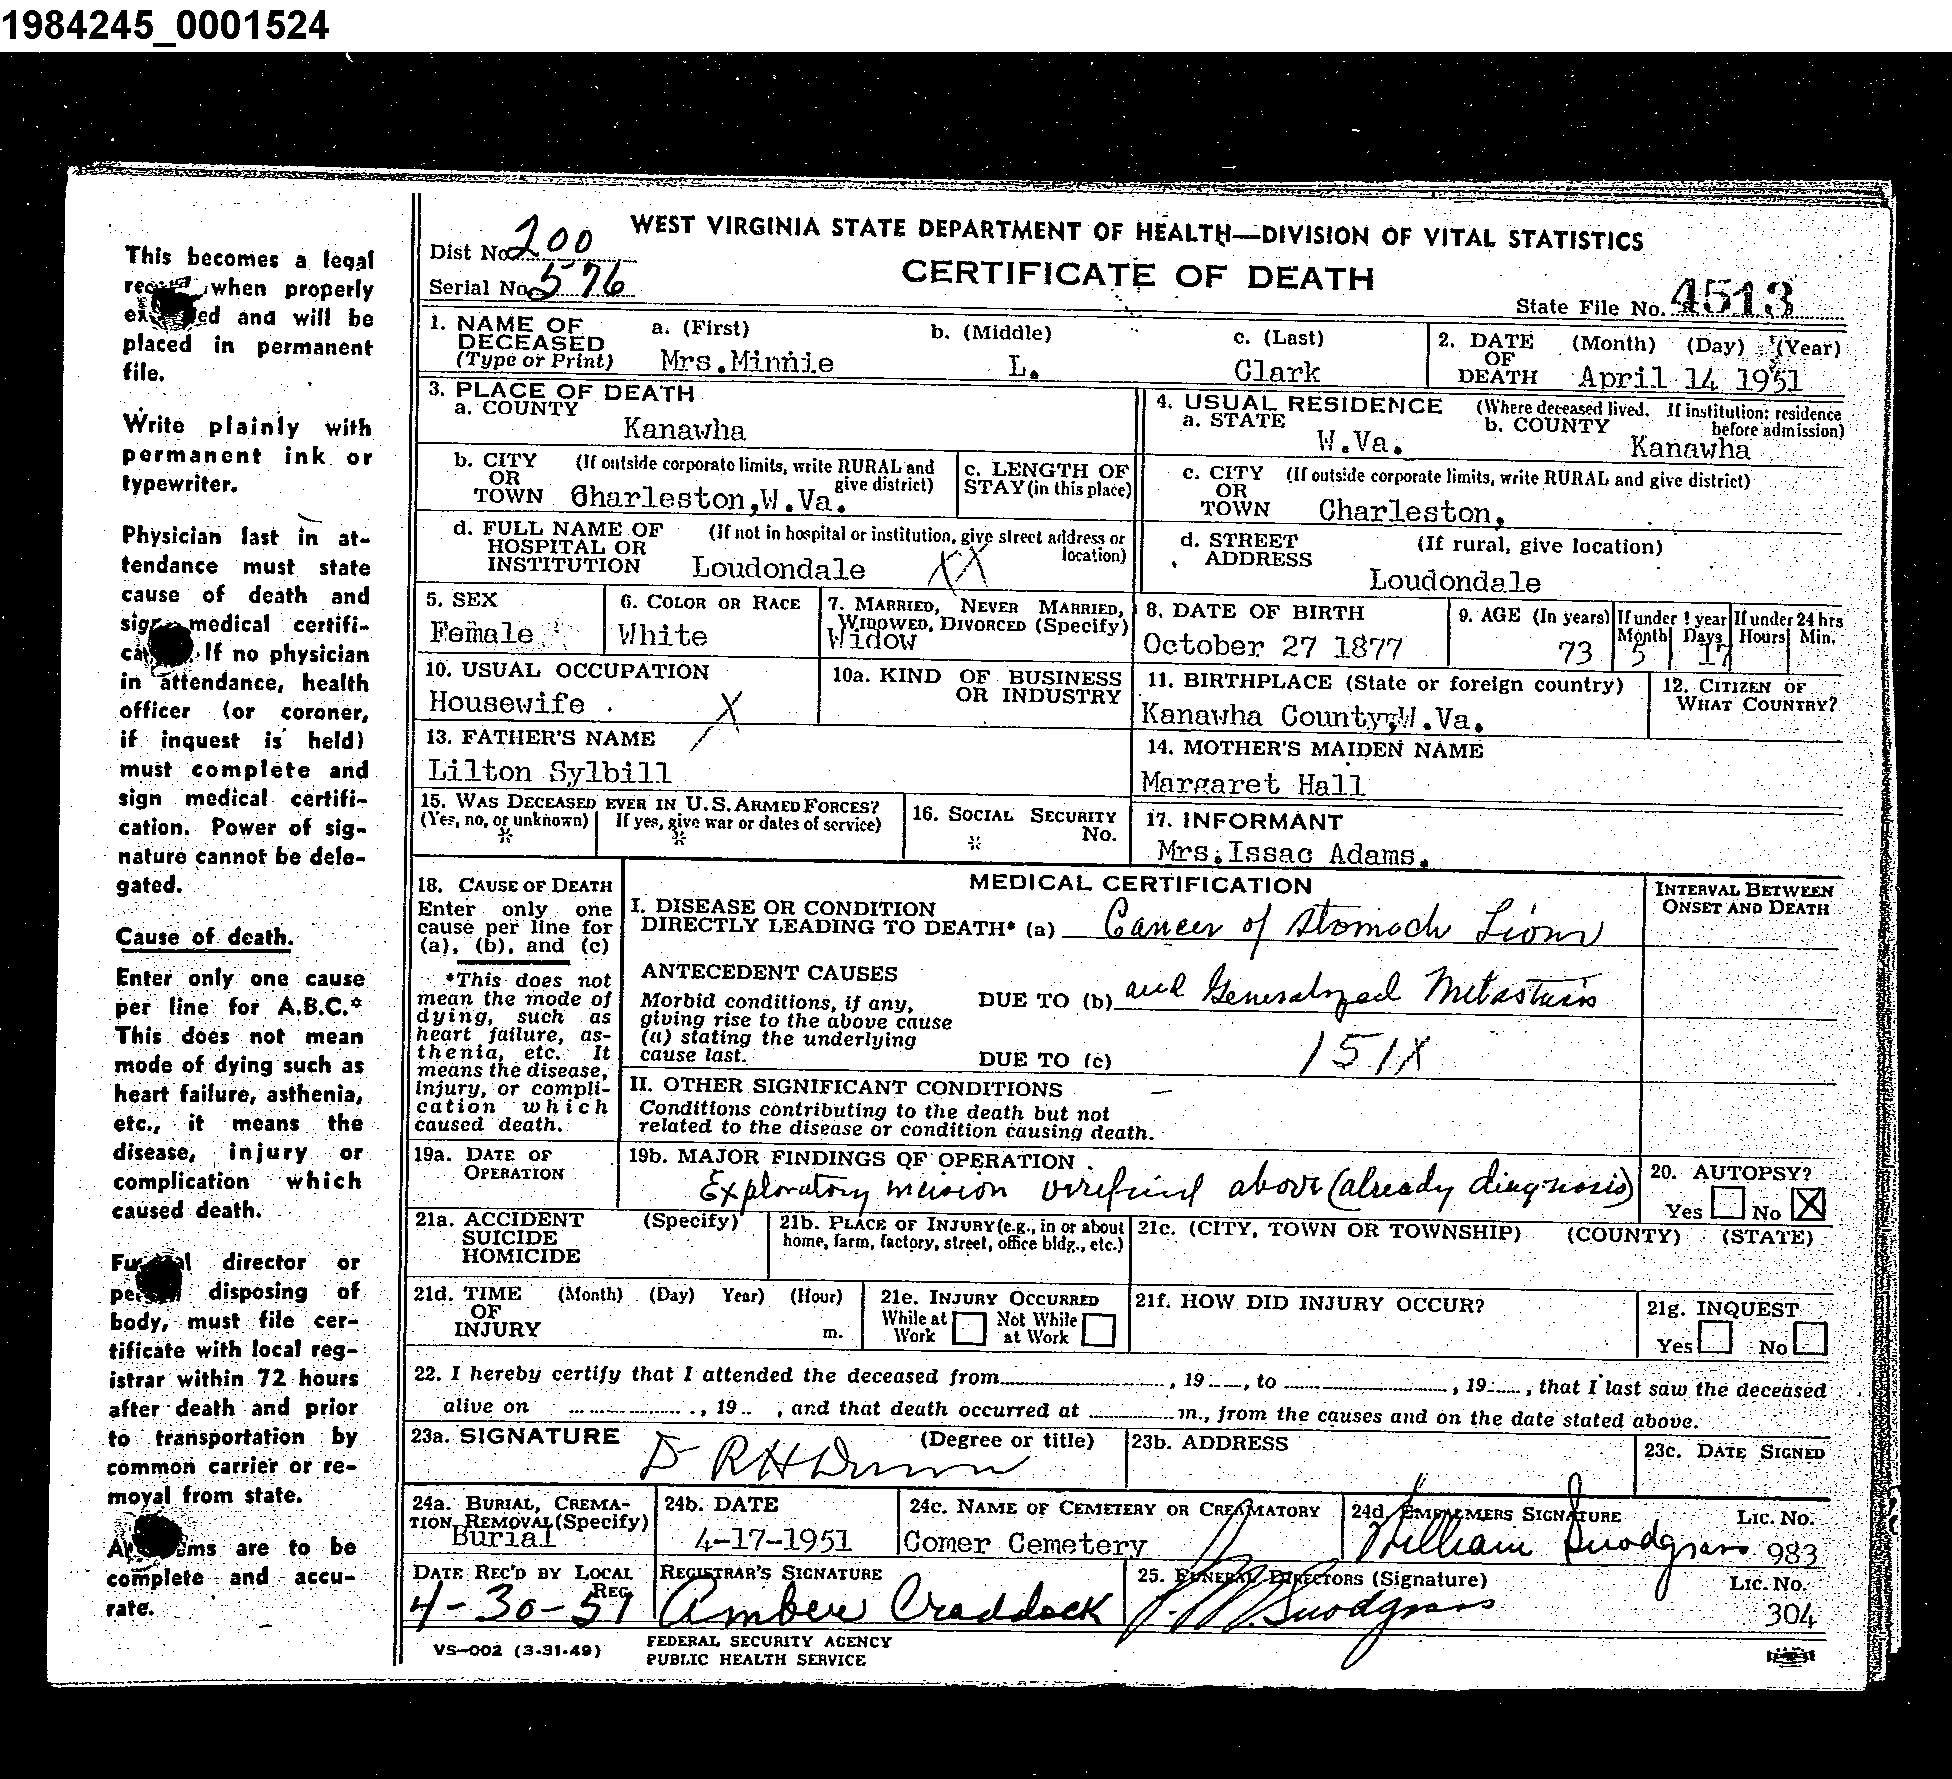 1984245_0001524
This becomes a legal
when properly
ed and will be
placed in permanent
file.
Write plainly with
permanent ink or
typewriter.
Physician last in at-
tendance must state
cause of death and
sign medical certifi-
If no physician
in attendance, health
officer (or coroner,
if inquest is held)
must complete and
sign medical certifi-
cation. Power of sig-
nature cannot be dele-
gated.
Cause of death.
Enter only one cause
per line for A.B.C.*
This does not mean
mode of dying such as
heart failure, asthenia,
etc., it means the
disease, injury or
complication which
caused death.
director or
disposing of
body, must file cer-
tificate with local reg-
istrar within 72 hours
after death and prior
to transportation by
common carrier or re-
moval from state.
are to be
complete and accu-
rate.
WEST VIRGINIA STATE DEPARTMENT OF HEALTH—DIVISION OF VITAL STATISTICS
Dist No. 200
CERTIFICATE OF DEATH
Serial No. 576
State File No. 4513
1. NAME OF DECEASED (Type or Print) a. (First) b. (Middle) c. (Last)
Mrs.Minnie L. Clark
2. DATE OF DEATH (Month) (Day) (Year)
April 14 1951
3. PLACE OF DEATH
a. COUNTY
Kanawha
4. USUAL RESIDENCE (Where deceased lived. If institution: residence before admission)
a. STATE b. COUNTY
W.Va. Kanawha
b. CITY OR TOWN (If outside corporate limits, write RURAL and give district)
Charleston,W.Va.
c. LENGTH OF STAY (in this place)
c. CITY OR TOWN (If outside corporate limits, write RURAL and give district)
Charleston,
d. FULL NAME OF HOSPITAL OR INSTITUTION (If not in hospital or institution, give street address or location)
Loudondale XX
d. STREET ADDRESS (If rural, give location)
Loudondale
5. SEX
Female
6. COLOR OR RACE
White
7. MARRIED, NEVER MARRIED, WIDOWED, DIVORCED (Specify)
Widow
8. DATE OF BIRTH
October 27 1877
9. AGE (In years) If under 1 year If under 24 hrs
Month Days Hours Min.
73 5 17
10. USUAL OCCUPATION
Housewife . X
10a. KIND OF BUSINESS OR INDUSTRY
11. BIRTHPLACE (State or foreign country)
Kanawha County,W.Va.
12. CITIZEN OF WHAT COUNTRY?
13. FATHER'S NAME
Lilton Sylbill
14. MOTHER'S MAIDEN NAME
Margaret Hall
15. WAS DECEASED EVER IN U.S. ARMED FORCES?
(Yes, no, or unknown) If yes, give war or dates of service)
* *
16. SOCIAL SECURITY No.
*
17. INFORMANT
Mrs.Issac Adams.
18. CAUSE OF DEATH
Enter only one
cause per line for
(a), (b), and (c)
*This does not
mean the mode of
dying, such as
heart failure, as-
thenia, etc. It
means the disease,
injury, or compli-
cation which
caused death.
MEDICAL CERTIFICATION
INTERVAL BETWEEN ONSET AND DEATH
I. DISEASE OR CONDITION
DIRECTLY LEADING TO DEATH* (a) Cancer of Stomach
ANTECEDENT CAUSES
Morbid conditions, if any,
giving rise to the above cause
(a) stating the underlying
cause last.
DUE TO (b) and Generalized Metastasis
DUE TO (c) 151X
II. OTHER SIGNIFICANT CONDITIONS
Conditions contributing to the death but not
related to the disease or condition causing death.
19a. DATE OF OPERATION
19b. MAJOR FINDINGS OF OPERATION
Exploratory incision verifying above (already diagnosis)
20. AUTOPSY?
Yes No X
21a. ACCIDENT SUICIDE HOMICIDE (Specify)
21b. PLACE OF INJURY (e.g., in or about home, farm, factory, street, office bldg., etc.)
21c. (CITY, TOWN OR TOWNSHIP) (COUNTY) (STATE)
21d. TIME OF INJURY (Month) (Day) Year) (Hour) m.
21e. INJURY OCCURRED
While at Work Not While at Work
21f. HOW DID INJURY OCCUR?
21g. INQUEST
Yes No
22. I hereby certify that I attended the deceased from , 19 , to , 19 , that I last saw the deceased
alive on , 19 , and that death occurred at m., from the causes and on the date stated above.
23a. SIGNATURE (Degree or title)
Dr R H Dunn
23b. ADDRESS
23c. DATE SIGNED
24a. BURIAL, CREMATION, REMOVAL (Specify)
Burial
24b. DATE
4-17-1951
24c. NAME OF CEMETERY OR CREMATORY
Comer Cemetery
24d. EMBALMERS SIGNATURE Lic. No.
William Snodgrass 983
DATE REC'D BY LOCAL REG.
4-30-51
REGISTRAR'S SIGNATURE
Amber Craddock
25. FUNERAL DIRECTORS (Signature) Lic. No.
Snodgrass 304
VS-002 (3-31-49)
FEDERAL SECURITY AGENCY
PUBLIC HEALTH SERVICE